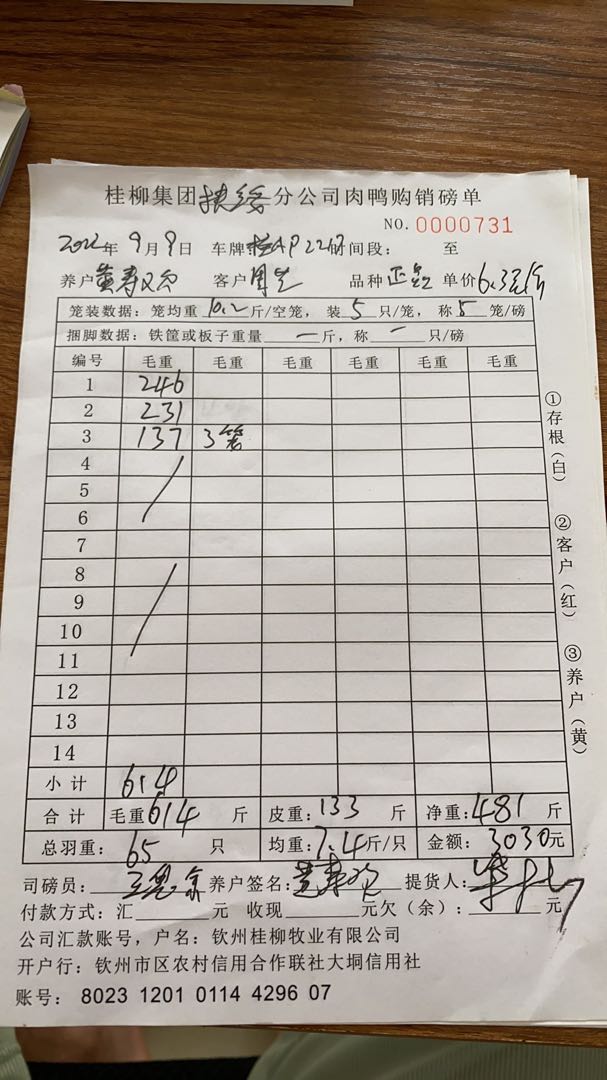 桂柳集团扶绥分公司肉鸭购销磅单
NO. 0000731
2022年 9月9日 车牌 AP22 时间段： 至
养户 黄寿 客户 周 品种 正 单价 6.3元/斤
笼装数据：笼均重 10.2 斤/空笼，装 5 只/笼，称 5 笼/磅
捆脚数据：铁筐或板子重量 一 斤，称 一 只/磅
编号 毛重 毛重 毛重 毛重 毛重 毛重
1 246
2 231
3 137 3笼
4
5
6
7
8
9
10
11
12
13
14
小计 614
合计 毛重 614 斤 皮重：133 斤 净重：481 斤
总羽重： 65 只 均重：7.4 斤/只 金额：3030元
司磅员： 养户签名： 提货人：
付款方式：汇 元 收现 元欠（余）： 元
公司汇款账号，户名：钦州桂柳牧业有限公司
开户行：钦州市区农村信用合作联社大垌信用社
账号：8023 1201 0114 4296 07
①存根（白）
②客户（红）
③养户（黄）